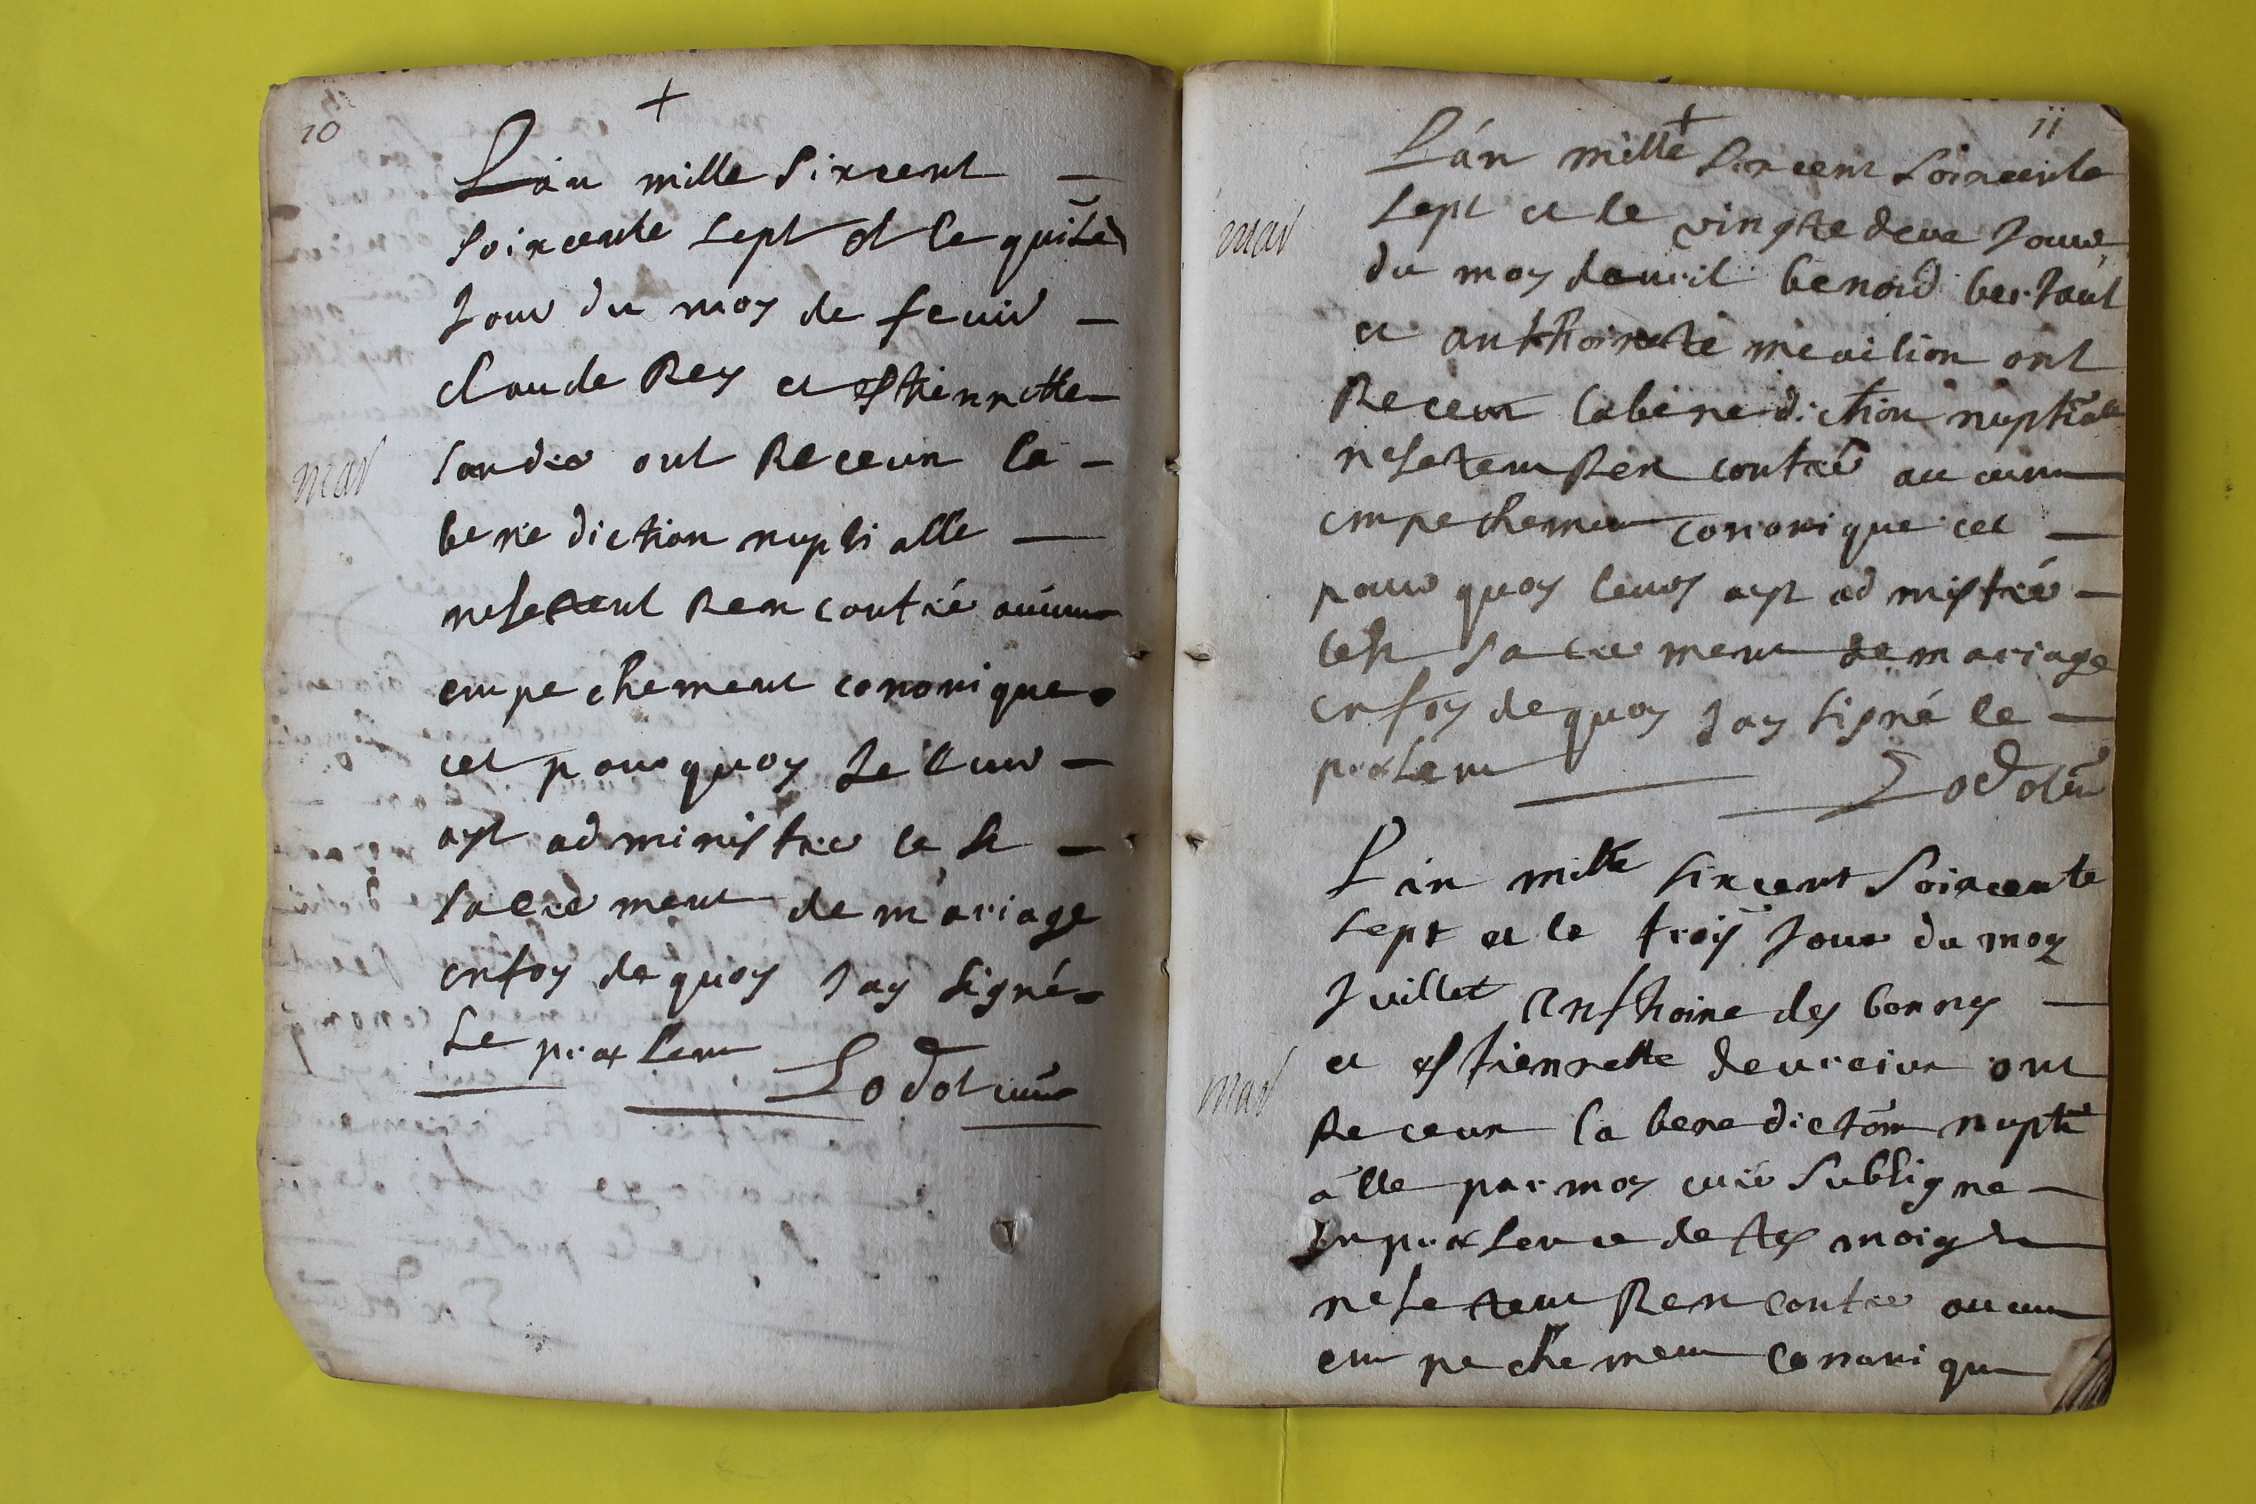 10
+
Lan mille sixcent —
soixcente sept et le quise
Jour du moy de feuvier —
claude Rey et estiennette —
ont Receun la —
mar
benediction nuptialle —
nesetent Ren contré aucun
empechement cononique
cet pour quoy Je leur —
ayt administre le st —
sacrement de mariage
enfoy de quoy Jay signé
Le present
11
+
L'an mille sixcent soixcente
mar
sept et le vingte deux Jour
du moy davril benoid bertaut
et anthoinete ont
Receun la benediction nuptialle
nesetent Ren contré aucun
empechement cononique cet —
pour quoy leurs ayt admistré —
le st sacrement de mariage
enfoy de quoy Jay signé le —
present
L'an mille sixcent soixcente
sept et le troiy Jour du moy
Juillet Anthoine des bonnes —
et estiennette ont
mar
Receun la benediction nupti
alle par moy curé subsigne —
En presence de tesmoigs
nesetent Ren contre aucun
empechement cononique